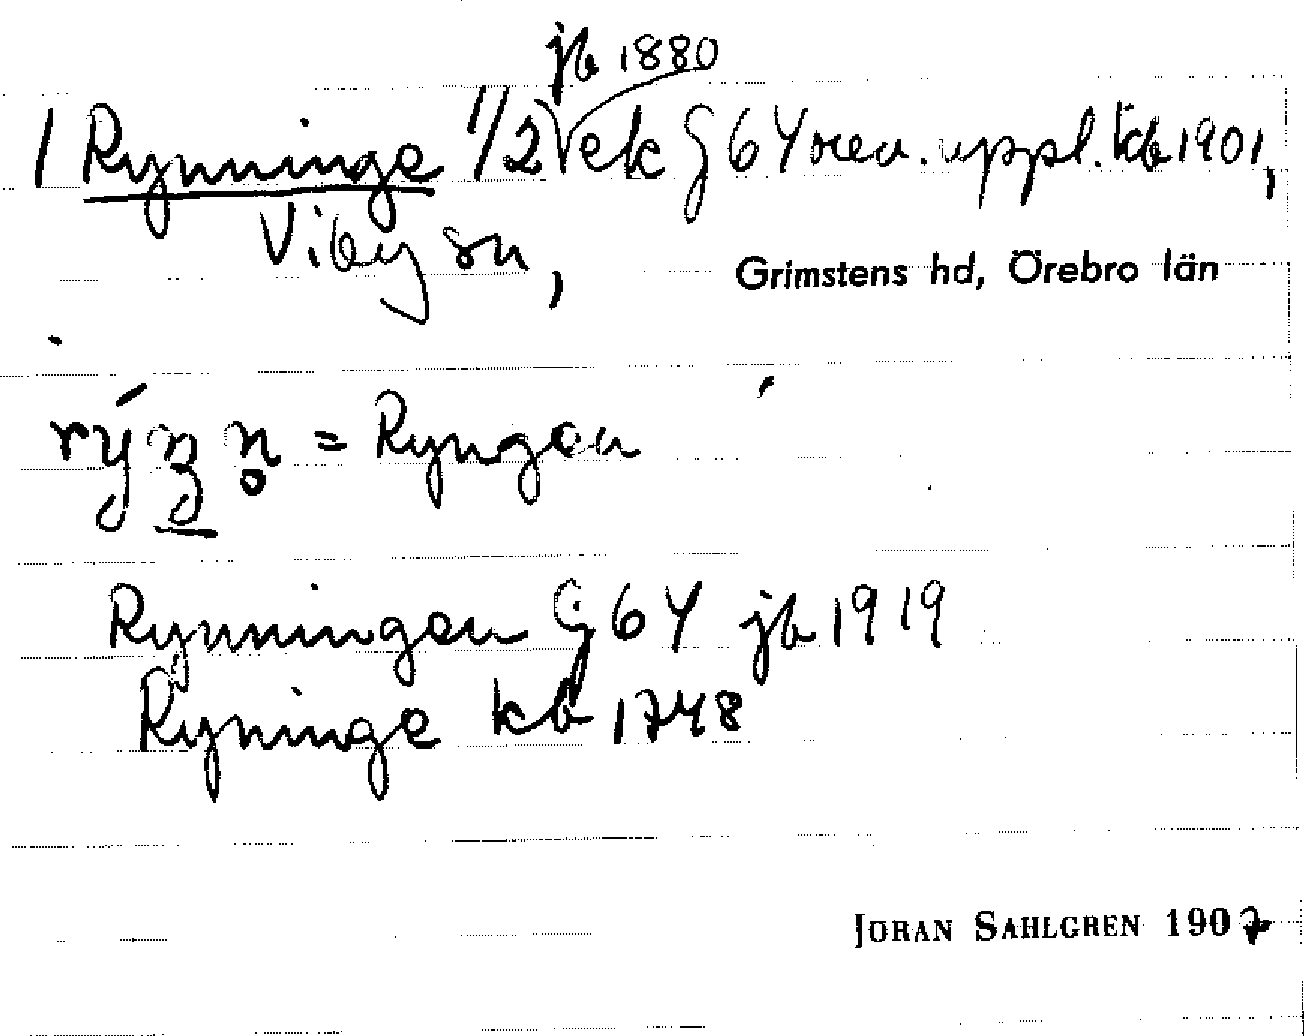 jb 1880
1 Rynninge 1/2 ek G 64 rev. uppl. kb 1901,
Viby sn,
Grimstens hd, Örebro län
= Ryngen
Rynningen G 64 jb 1919
Ryninge kb 1748
JÖRAN SAHLGREN 1907